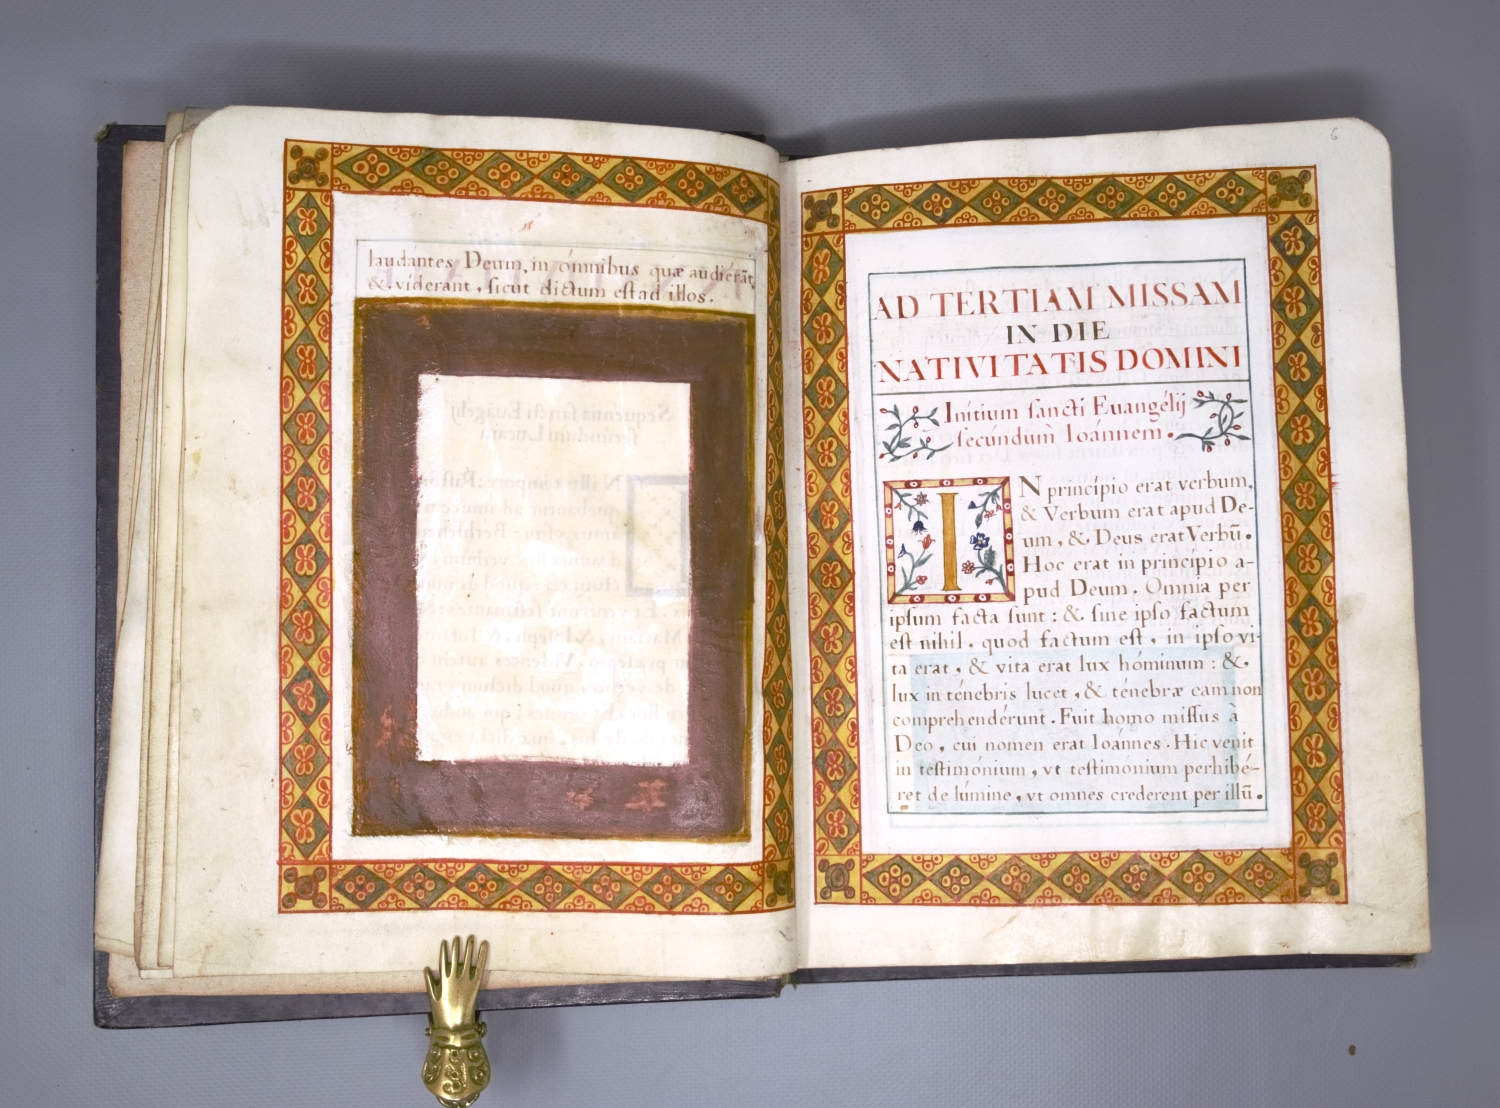 laudántes Deum, in ómnibus quæ audiérāt,
&. víderant, ſicut dictum eſt ad illos.
6
AD TERTIAM MISSAM
IN DIE
NATIVITATIS DOMINI
Inítium ſancti Euangélij
ſecúndum Ioánnem.
IN principio erat verbum,
& Verbum erat apud De-
um, &. Deus erat Verbū.
Hoc erat in princípio a-
pud Deum. Omnia per
ipſum facta ſunt: &. ſine ipſo factum
eſt níhil, quod factum eſt, in ipſo vi-
ta erat, & vita erat lux hóminum: &.
lux in ténebris lucet, & ténebræ eam non
comprehendérunt. Fuit homo miſſus à
Deo, cui nomen erat Ioánnes. Hic venit
in teſtimónium, vt teſtimónium perhibé-
ret de lúmine, vt omnes crederent per illū.